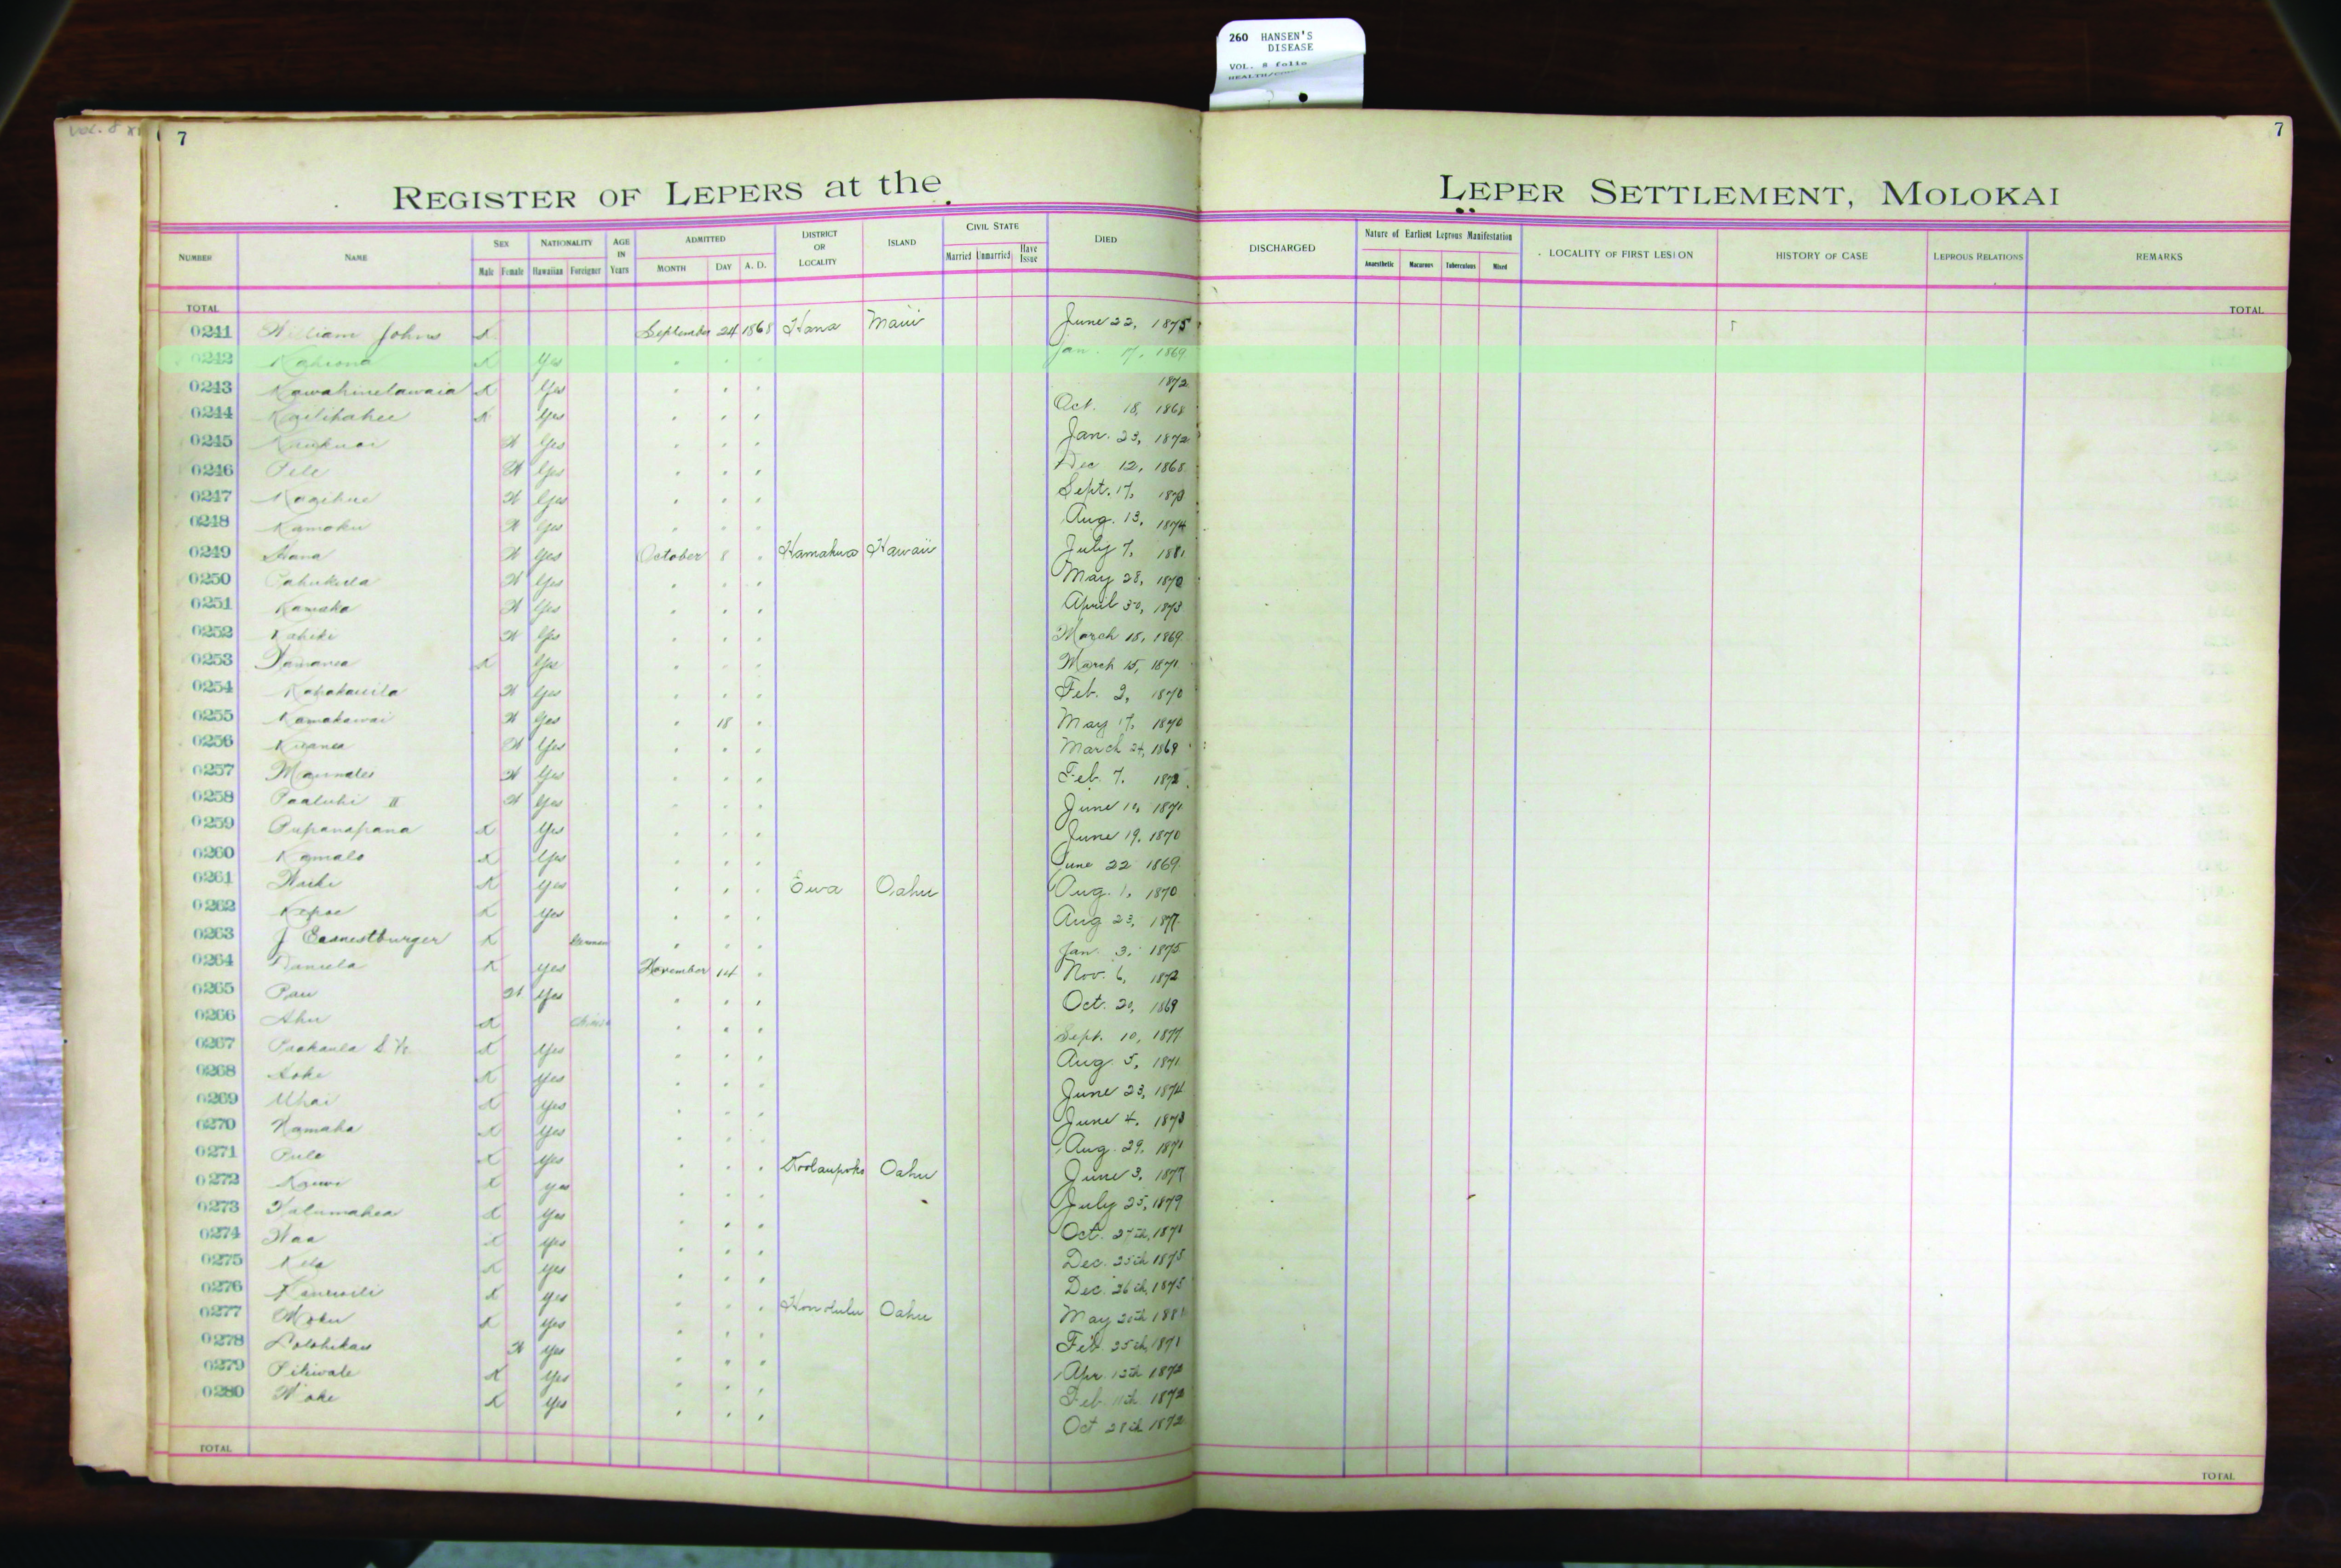 260 HANSEN'S
DISEASE
VOL. 8 folio
7
7
REGISTER OF LEPERS at the
LEPER SETTLEMENT, MOLOKAI
NUMBER NAME SEX NATIONALITY AGE IN Years ADMITTED DISTRICT OR LOCALITY ISLAND CIVIL STATE DIED DISCHARGED Nature of Earliest Leprous Manifestation LOCALITY OF FIRST LESION HISTORY OF CASE LEPROUS RELATIONS REMARKS
Male Female Hawaiian Foreigner MONTH DAY A. D. Married Unmarried Have Issue Anaesthetic Macurous Tuberculous Mixed
TOTAL TOTAL
0241 William Johns X September 24 1868 Hana Maui June 22, 1875
0242 Kahiona X Yes " " " Jan. 17, 1869
0243 Kawahinelawaia X Yes " " " 1872
0244 X Yes " " " Oct. 18, 1868
0245 X Yes " " " Jan. 23, 1872
0246 Pele X Yes " " " Dec 12, 1868
0247 X Yes " " " Sept. 17,
0248 Kamoku X Yes " " " Aug. 13, 1874
0249 Hana X Yes October 8 " Hamakua Hawaii July 7, 1881
0250 X Yes " " " May 28, 1870
0251 Kamaka X Yes " " " April 30, 1873
0252 Kahiki X Yes " " " March 18, 1869
0253 X Yes " " " March 15, 1871
0254 Kapakauila X Yes " " " Feb. 2, 1870
0255 Kamakawai X Yes " 18 " May 17, 1870
0256 X Yes " " " March 24, 1869
0257 X Yes " " " Feb. 7, 1872
0258 Paaluhi II X Yes " " " June 1871
0259 Pupanapana X Yes " " " June 19, 1870
0260 Kamalo X Yes " " " June 22 1869
0261 X Yes " " " Ewa Oahu Aug. 1, 1870
0262 Kepae X Yes " " " Aug 23, 1877
0263 J Earnestburger X German " " " Jan. 3, 1875
0264 Daniela X Yes November 14 " Nov. 6, 1872
0265 Pau X Yes " " " Oct. 20, 1869
0266 Ahu X Chinese " " " Sept. 10, 1877
0267 Paakaula X Yes " " " Aug. 5, 1871
0268 X Yes " " " June 23, 1874
0269 Uhai X Yes " " " June 4, 1873
0270 Kamaka X Yes " " " Aug. 29, 1871
0271 Pule X Yes " " " Koolaupoko Oahu June 3, 1877
0272 X Yes " " " July 25, 1879
0273 Kalumahea X Yes " " " Oct. 27th, 1871
0274 X Yes " " " Dec. 25th 1875
0275 X Yes " " " Dec. 26th, 1875
0276 X Yes " " " Honolulu Oahu May 20th
0277 X Yes " " " Feb. 25th, 1871
0278 Lolohikau X Yes " " " Apr. 13th 1872
0279 Piliwale X Yes " " " Feb. 11th 1872
0280 X Yes " " " Oct 28th 1872
TOTAL TOTAL